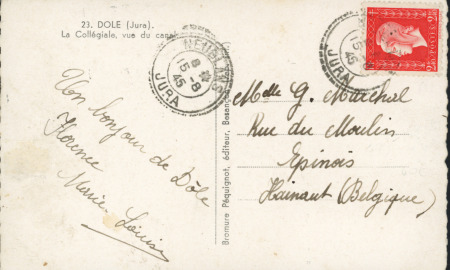 23. DOLE (Jura).
La Collégiale, vue du canal
NEUBLANS
8 H
15 -8
45
JURA
15 -8
45
JURA
Un bonjour de Dôle
Florence
Marie-Louise
Bromure Péquignot, éditeur, Besançon
Melle G. Maréchal
Rue du Moulin
Epinois
Hainaut (Belgique)